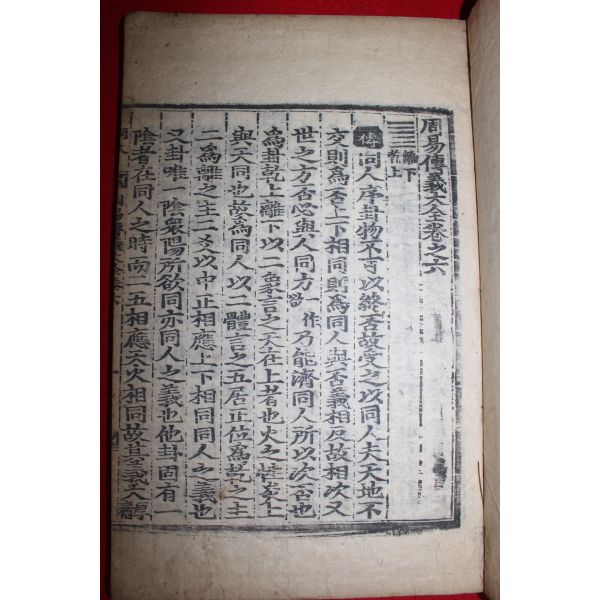 周易傳義大全卷之六
離下
乾上
傳 同人序卦物不可以終否故受之以同人夫天地不
交則爲否上下相同則爲同人與否義相反故相次又
世之方否必與人同力 一作欲 乃能濟同人所以次否也
爲卦乾上離下以二象言之天在上者也火之性炎上
與天同也故爲同人以二體言之五居正位爲乾之主
二爲離之主二爻以中正相應上下相同同人之義也
又卦唯一陰衆陽所欲同亦同人之義也他卦固有一
陰者在同人之時而二五相應天火相同故其義大